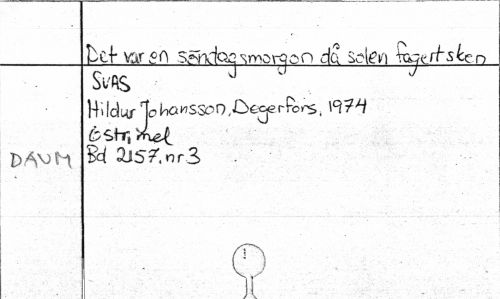 Det var en söndagsmorgon då solen fagert sken
SVAS
Hildur Johansson, Degerfors, 1974
6 str, mel
DAUM Bd 2157, nr 3